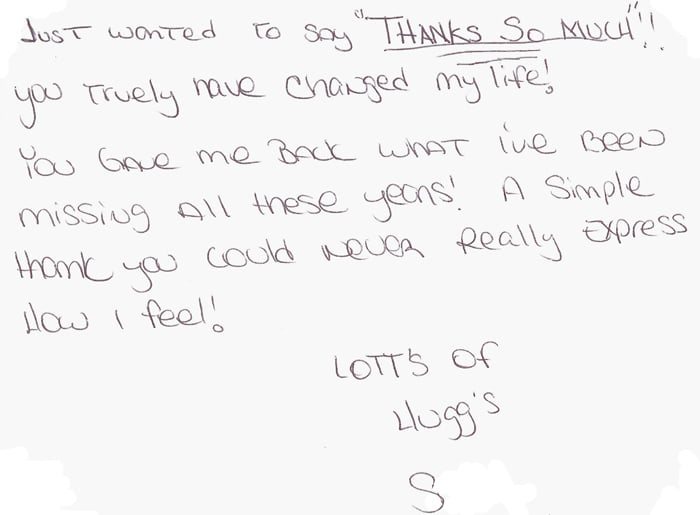 Just wanted to say "THANKS SO MUCH"!!
you Truely have changed my life!
You Gave me Back what i've BEEN
missing All these years! A Simple
thank you could never Really Express
How I feel!
LOTT'S OF
Hugg's
S